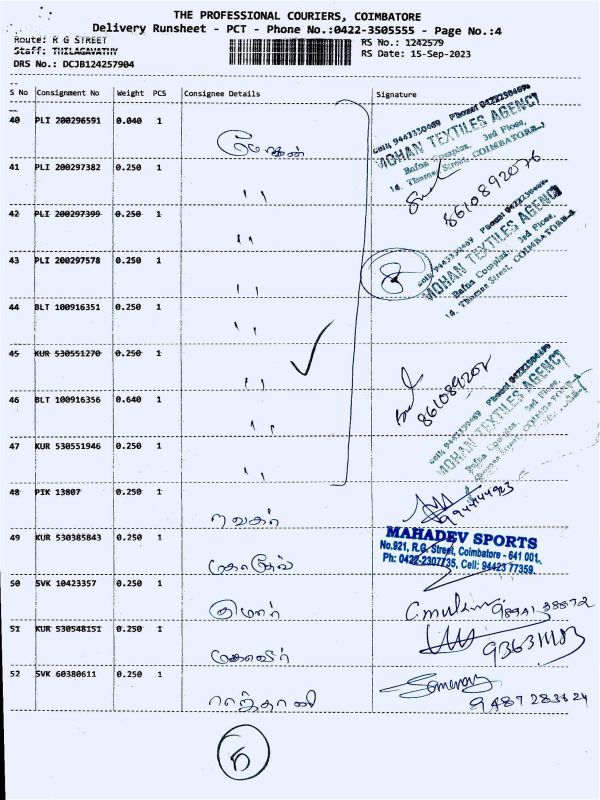 THE PROFESSIONAL COURIERS, COIMBATORE
Delivery Runsheet - PCT - Phone No.:0422-3505555 - Page No.:4
Route: R G STREET
RS No.: 1242579
Staff: THILAGAVATHY
RS Date: 15-Sep-2023
DRS No.: DCJB124257904
S No Consignment No Weight PCS Consignee Details Signature
40 PLI 200296591 0.040 1 மோகன்
Cell: 9443350469 Phone: 04222504699
MOHAN TEXTILES AGENCY
Bafna Complex, 3rd Floor,
14, Thomas Street, COIMBATORE-1
41 PLI 200297382 0.250 1 ,,
8610892076
42 PLI 200297399 0.250 1 ,,
MOHAN TEXTILES AGENCY
Bafna Complex, 3rd Floor,
14, Thomas Street, COIMBATORE-1
43 PLI 200297578 0.250 1 ,,
8
44 BLT 100916351 0.250 1 ,,
45 KUR 530551270 0.250 1 ,,
46 BLT 100916356 0.640 1 ,,
MOHAN TEXTILES AGENCY
Bafna Complex, 3rd Floor,
47 KUR 530551946 0.250 1 ,,
48 PIK 13807 0.250 1
49 KUR 530385843 0.250 1 மகாதேவ்
MAHADEV SPORTS
No.921, R.G. Street, Coimbatore - 641 001.
Ph: 0422-2307735, Cell: 94423 77359
50 SVK 10423357 0.250 1 குமார்
51 KUR 530548151 0.250 1 மகாவீர்
52 SVK 60380611 0.250 1